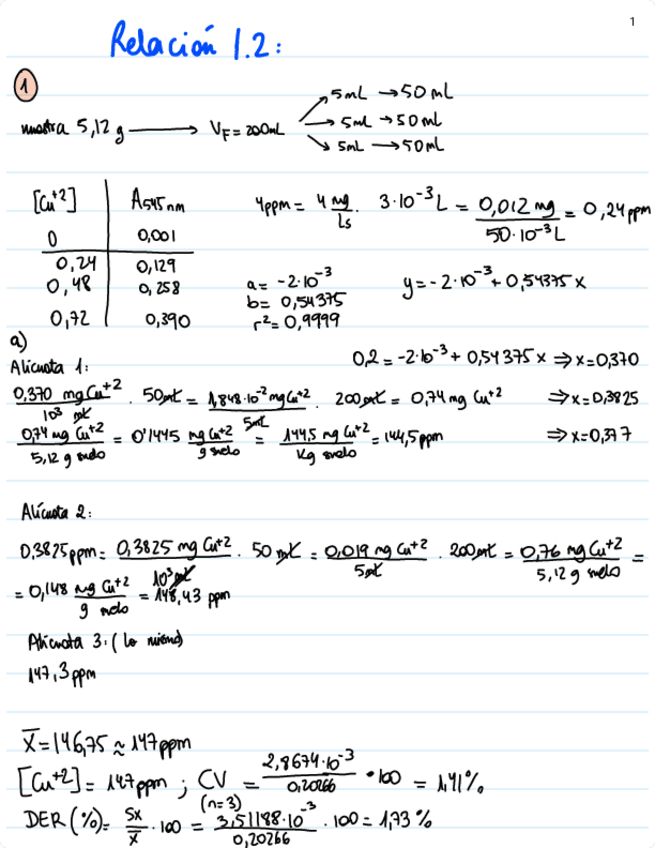 1
Relación 1.2:
1
muestra 5,12 g → V_F = 200mL
5mL → 50 mL
5mL → 50 mL
5mL → 50mL
[Cu+2] A545 nm
0 0,001
0,24 0,129
0,48 0,258
0,72 0,390
4ppm = 4 mg/Ls · 3·10^-3 L = 0,012 mg / 50·10^-3 L = 0,24 ppm
a = -2·10^-3
b = 0,54375
r² = 0,9999
y = -2·10^-3 + 0,54375 x
a)
Alicuota 1:
0,2 = -2·10^-3 + 0,54375 x ⇒ x = 0,370
0,370 mg Cu+2 / 10³ mL · 50 mL = 1,848·10^-2 mg Cu+2 / 5mL · 200 mL = 0,74 mg Cu+2 ⇒ x = 0,3825
0,74 mg Cu+2 / 5,12 g suelo = 0'1445 mg Cu+2 / g suelo = 144,5 mg Cu+2 / Kg suelo = 144,5 ppm ⇒ x = 0,377
Alícuota 2:
0,3825 ppm = 0,3825 mg Cu+2 / 10³ mL · 50 mL = 0,019 mg Cu+2 / 5mL · 200 mL = 0,76 mg Cu+2 / 5,12 g suelo =
= 0,148 mg Cu+2 / g suelo = 148,43 ppm
Alicuota 3: (lo mismo)
147,3 ppm
X̄ = 146,75 ≈ 147 ppm
[Cu+2] = 147 ppm ; CV (n=3) = 2,8674·10^-3 / 0,20266 · 100 = 1,41%
DER (%) = Sx / x̄ · 100 = 3,51188·10^-3 / 0,20266 · 100 = 1,73 %